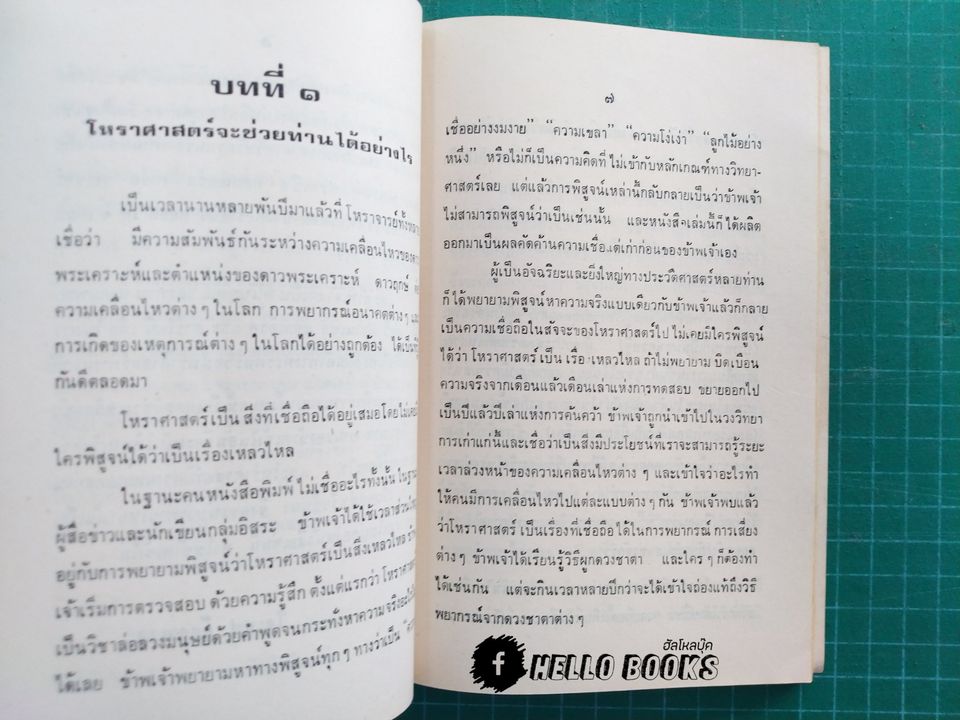 บทที่ ๑
โหราศาสตร์จะช่วยท่านได้อย่างไร
เป็นเวลานานหลายพันปีมาแล้วที่ โหราจารย์
เชื่อว่า มีความสัมพันธ์กันระหว่างความเคลื่อนไหวของ
พระเคราะห์และตำแหน่งของดาวพระเคราะห์ ดาวฤกษ์
ความเคลื่อนไหวต่าง ๆ ในโลก การพยากรณ์อนาคตต่าง ๆ
การเกิดของเหตุการณ์ต่าง ๆ ในโลกได้อย่างถูกต้อง
กันดีตลอดมา
โหราศาสตร์เป็น สิ่งที่เชื่อถือได้อยู่เสมอโดย
ใครพิสูจน์ได้ว่าเป็นเรื่องเหลวไหล
ในฐานะคนหนังสือพิมพ์ ไม่เชื่ออะไรทั้งนั้น
ผู้สื่อข่าวและนักเขียนกลุ่มอิสระ ข้าพเจ้าได้ใช้เวลา
อยู่กับการพยายามพิสูจน์ว่าโหราศาสตร์เป็นสิ่งเหลวไหล
เจ้าเริ่มการตรวจสอบ ด้วยความรู้สึก ตั้งแต่แรกว่า
เป็นวิชาล่อลวงมนุษย์ด้วยคำพูดจนกระทั่งหาความจริง
ได้เลย ข้าพเจ้าพยายามหาทางพิสูจน์ทุก ๆ ทางว่าเป็น
๗
เชื่ออย่างงมงาย” “ความเขลา” “ความโง่เง่า” “ลูกไม้อย่าง
หนึ่ง” หรือไม่ก็เป็นความคิดที่ ไม่เข้ากับหลักเกณฑ์ทางวิทยา-
ศาสตร์เลย แต่แล้วการพิสูจน์เหล่านี้กลับกลายเป็นว่าข้าพเจ้า
ไม่สามารถพิสูจน์ว่าเป็นเช่นนั้น และหนังสือเล่มนี้ก็ได้ผลิต
ออกมาเป็นผลคัดค้านความเชื่อแต่เก่าก่อนของข้าพเจ้าเอง
ผู้เป็นอัจฉริยะและยิ่งใหญ่ทางประวัติศาสตร์หลายท่าน
ก็ได้พยายามพิสูจน์หาความจริงแบบเดียวกับข้าพเจ้าแล้วก็กลาย
เป็นความเชื่อถือในสัจจะของโหราศาสตร์ไป ไม่เคยมีใครพิสูจน์
ได้ว่า โหราศาสตร์ เป็น เรื่องเหลวไหล ถ้าไม่พยายาม บิดเบือน
ความจริงจากเดือนแล้วเดือนเล่าแห่งการทดสอบ ขยายออกไป
เป็นปีแล้วปีเล่าแห่งการค้นคว้า ข้าพเจ้าถูกนำเข้าไปในวงวิทยา
การเก่าแก่นี้และเชื่อว่าเป็นสิ่งมีประโยชน์ที่เราจะสามารถรู้ระยะ
เวลาล่วงหน้าของความเคลื่อนไหวต่าง ๆ และเข้าใจว่าอะไรทำ
ให้คนมีการเคลื่อนไหวไปแต่ละแบบต่าง ๆ กัน ข้าพเจ้าพบแล้ว
ว่าโหราศาสตร์ เป็นเรื่องที่เชื่อถือ ได้ในการพยากรณ์ การเสี่ยง
ต่าง ๆ ข้าพเจ้าได้เรียนรู้วิธีผูกดวงชาตา และใคร ๆ ก็ต้องทำ
ได้เช่นกัน แต่จะกินเวลาหลายปีกว่าจะได้เข้าใจถ่องแท้ถึงวิธี
พยากรณ์จากดวงชาตาต่าง ๆ
ฮัลโหลบุ๊ค
f HELLO BOOKS